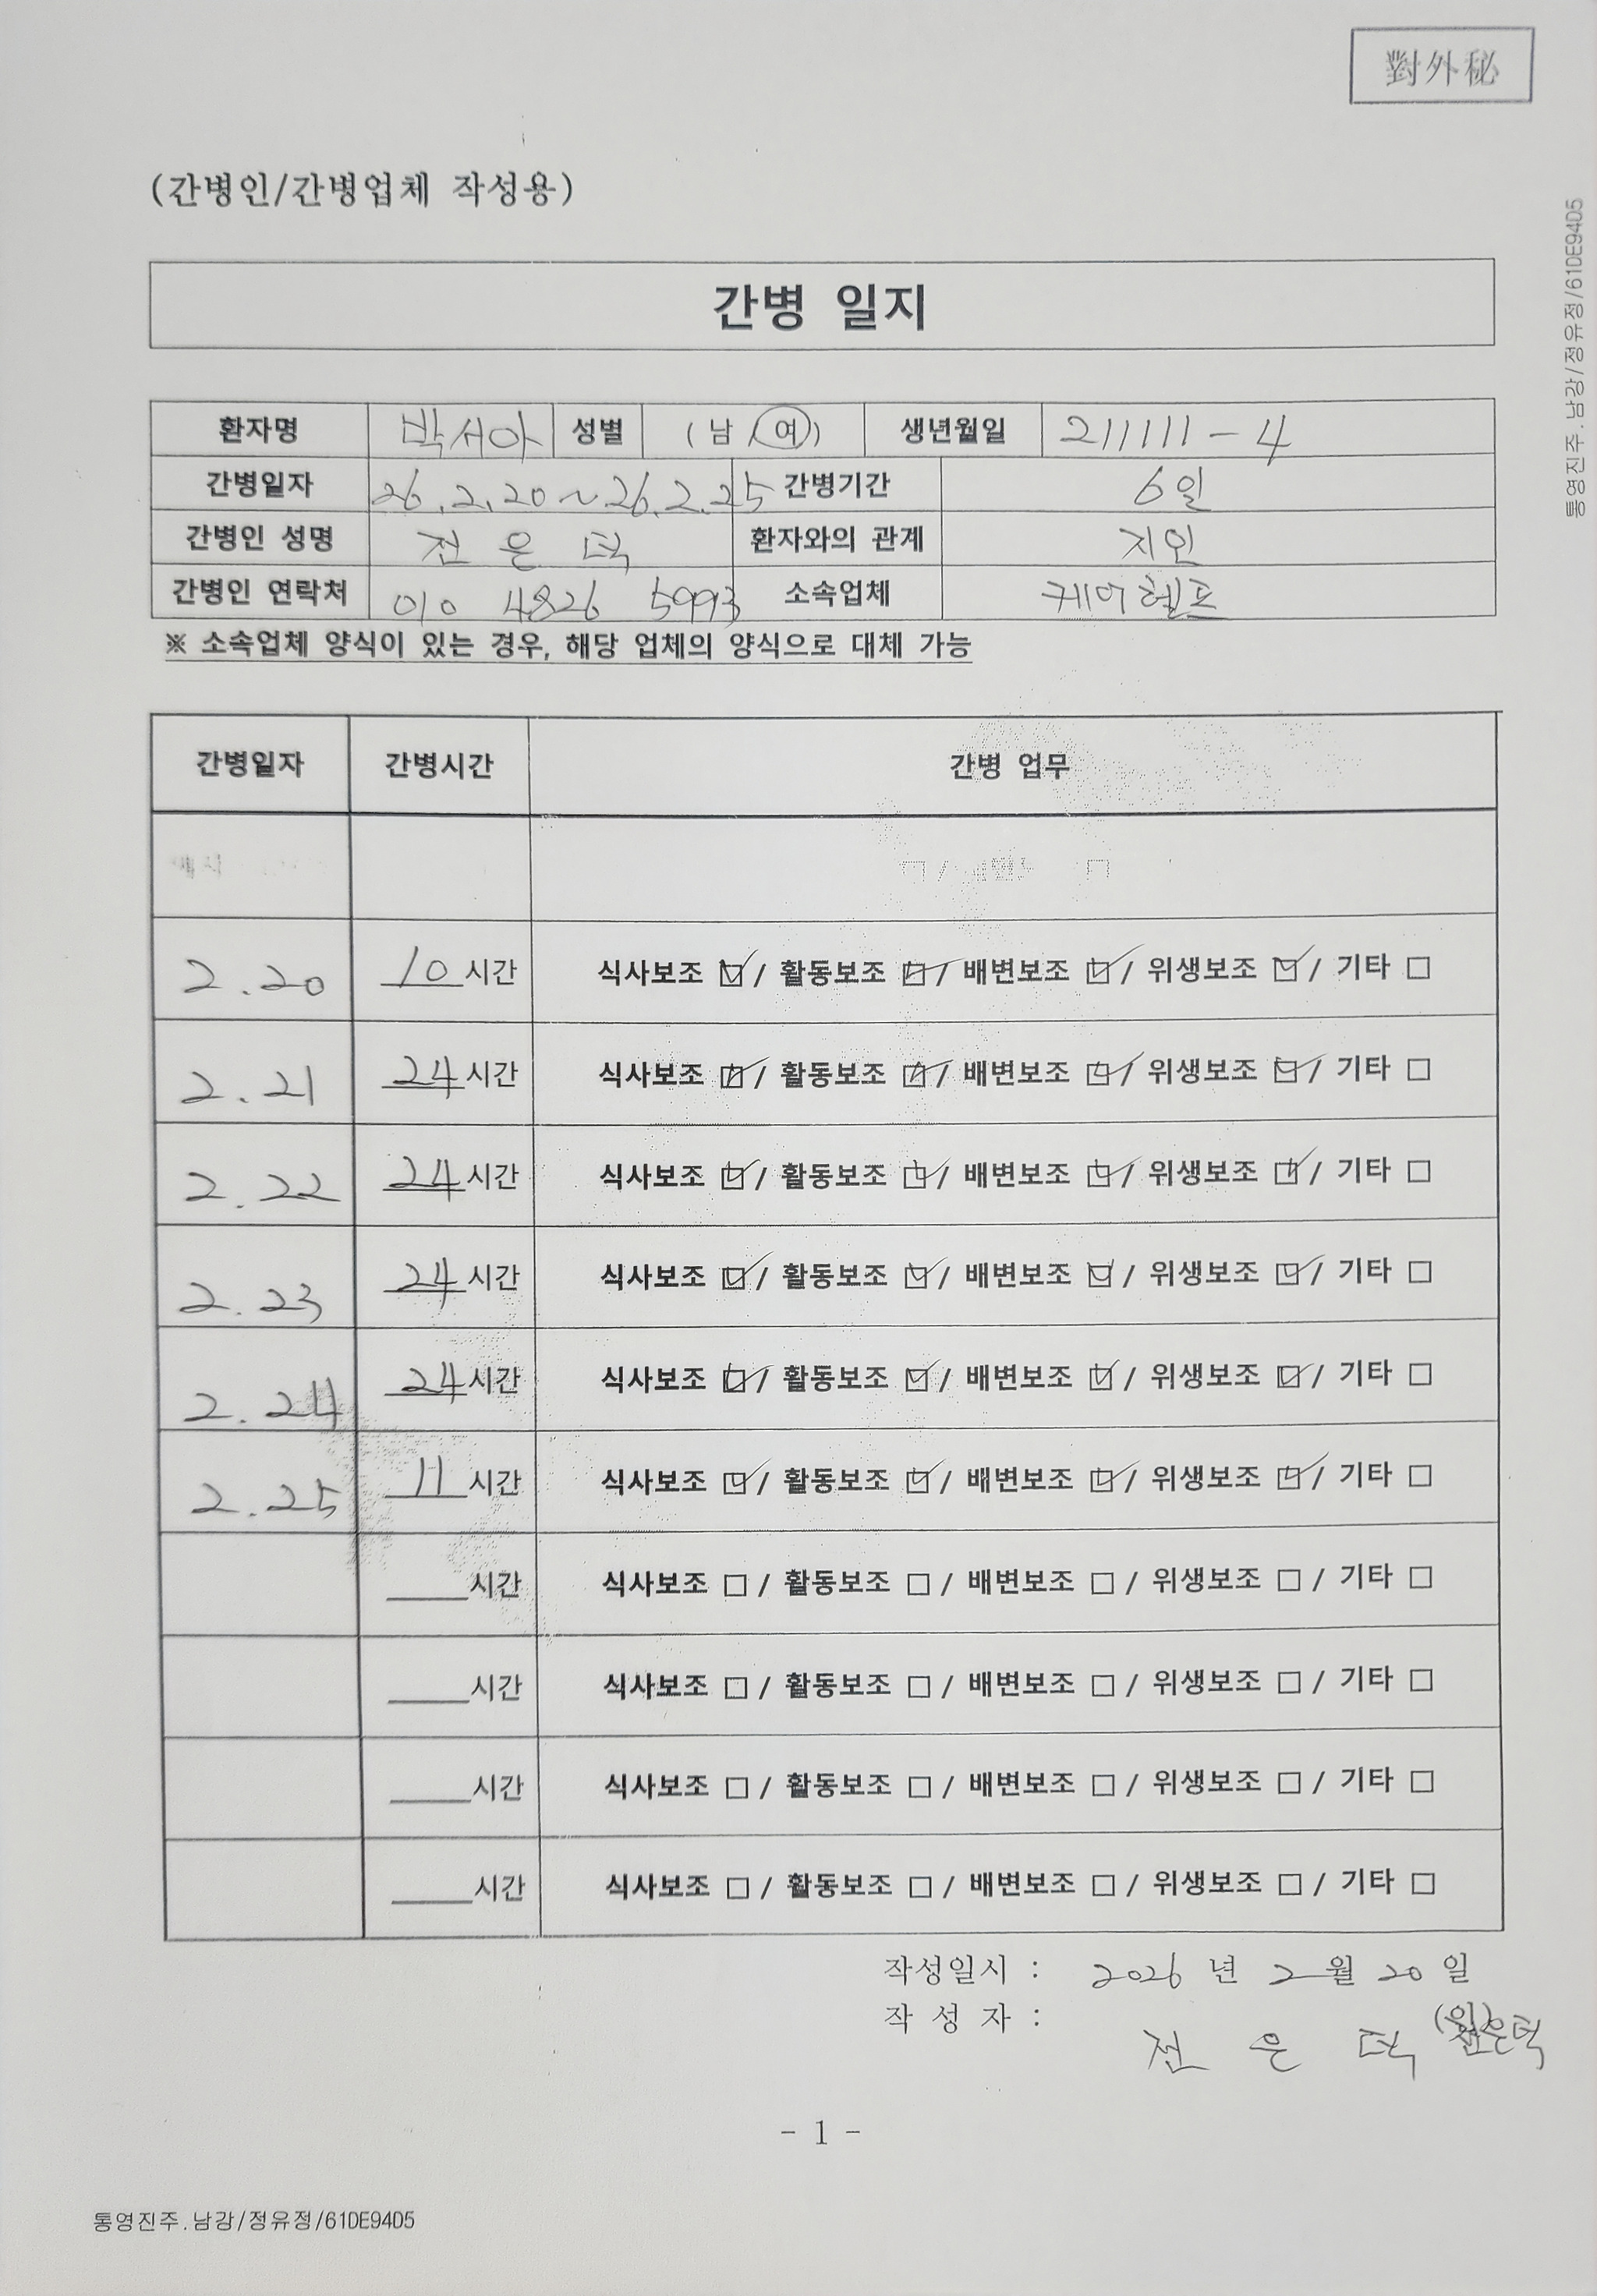 對外秘
(간병인/간병업체 작성용)
통영진주.남강/정유정/61DE94D5
간병 일지
환자명 박서아 성별 (남/여) 생년월일 211111-4
간병일자 26.2.20~26.2.25 간병기간 6일
간병인 성명 전은덕 환자와의 관계 지인
간병인 연락처 010 4826 5993 소속업체 케어헬프
※ 소속업체 양식이 있는 경우, 해당 업체의 양식으로 대체 가능
간병일자 간병시간 간병 업무
예시
2.20 10시간 식사보조 ☑ / 활동보조 ☑ / 배변보조 ☑ / 위생보조 ☑ / 기타 □
2.21 24시간 식사보조 ☑ / 활동보조 ☑ / 배변보조 ☑ / 위생보조 ☑ / 기타 □
2.22 24시간 식사보조 ☑ / 활동보조 ☑ / 배변보조 ☑ / 위생보조 ☑ / 기타 □
2.23 24시간 식사보조 ☑ / 활동보조 ☑ / 배변보조 ☑ / 위생보조 ☑ / 기타 □
2.24 24시간 식사보조 ☑ / 활동보조 ☑ / 배변보조 ☑ / 위생보조 ☑ / 기타 □
2.25 11시간 식사보조 ☑ / 활동보조 ☑ / 배변보조 ☑ / 위생보조 ☑ / 기타 □
____시간 식사보조 □ / 활동보조 □ / 배변보조 □ / 위생보조 □ / 기타 □
____시간 식사보조 □ / 활동보조 □ / 배변보조 □ / 위생보조 □ / 기타 □
____시간 식사보조 □ / 활동보조 □ / 배변보조 □ / 위생보조 □ / 기타 □
____시간 식사보조 □ / 활동보조 □ / 배변보조 □ / 위생보조 □ / 기타 □
작성일시 : 2026 년 2 월 20 일
작 성 자 : 전은덕 (인) 전은덕
- 1 -
통영진주.남강/정유정/61DE94D5